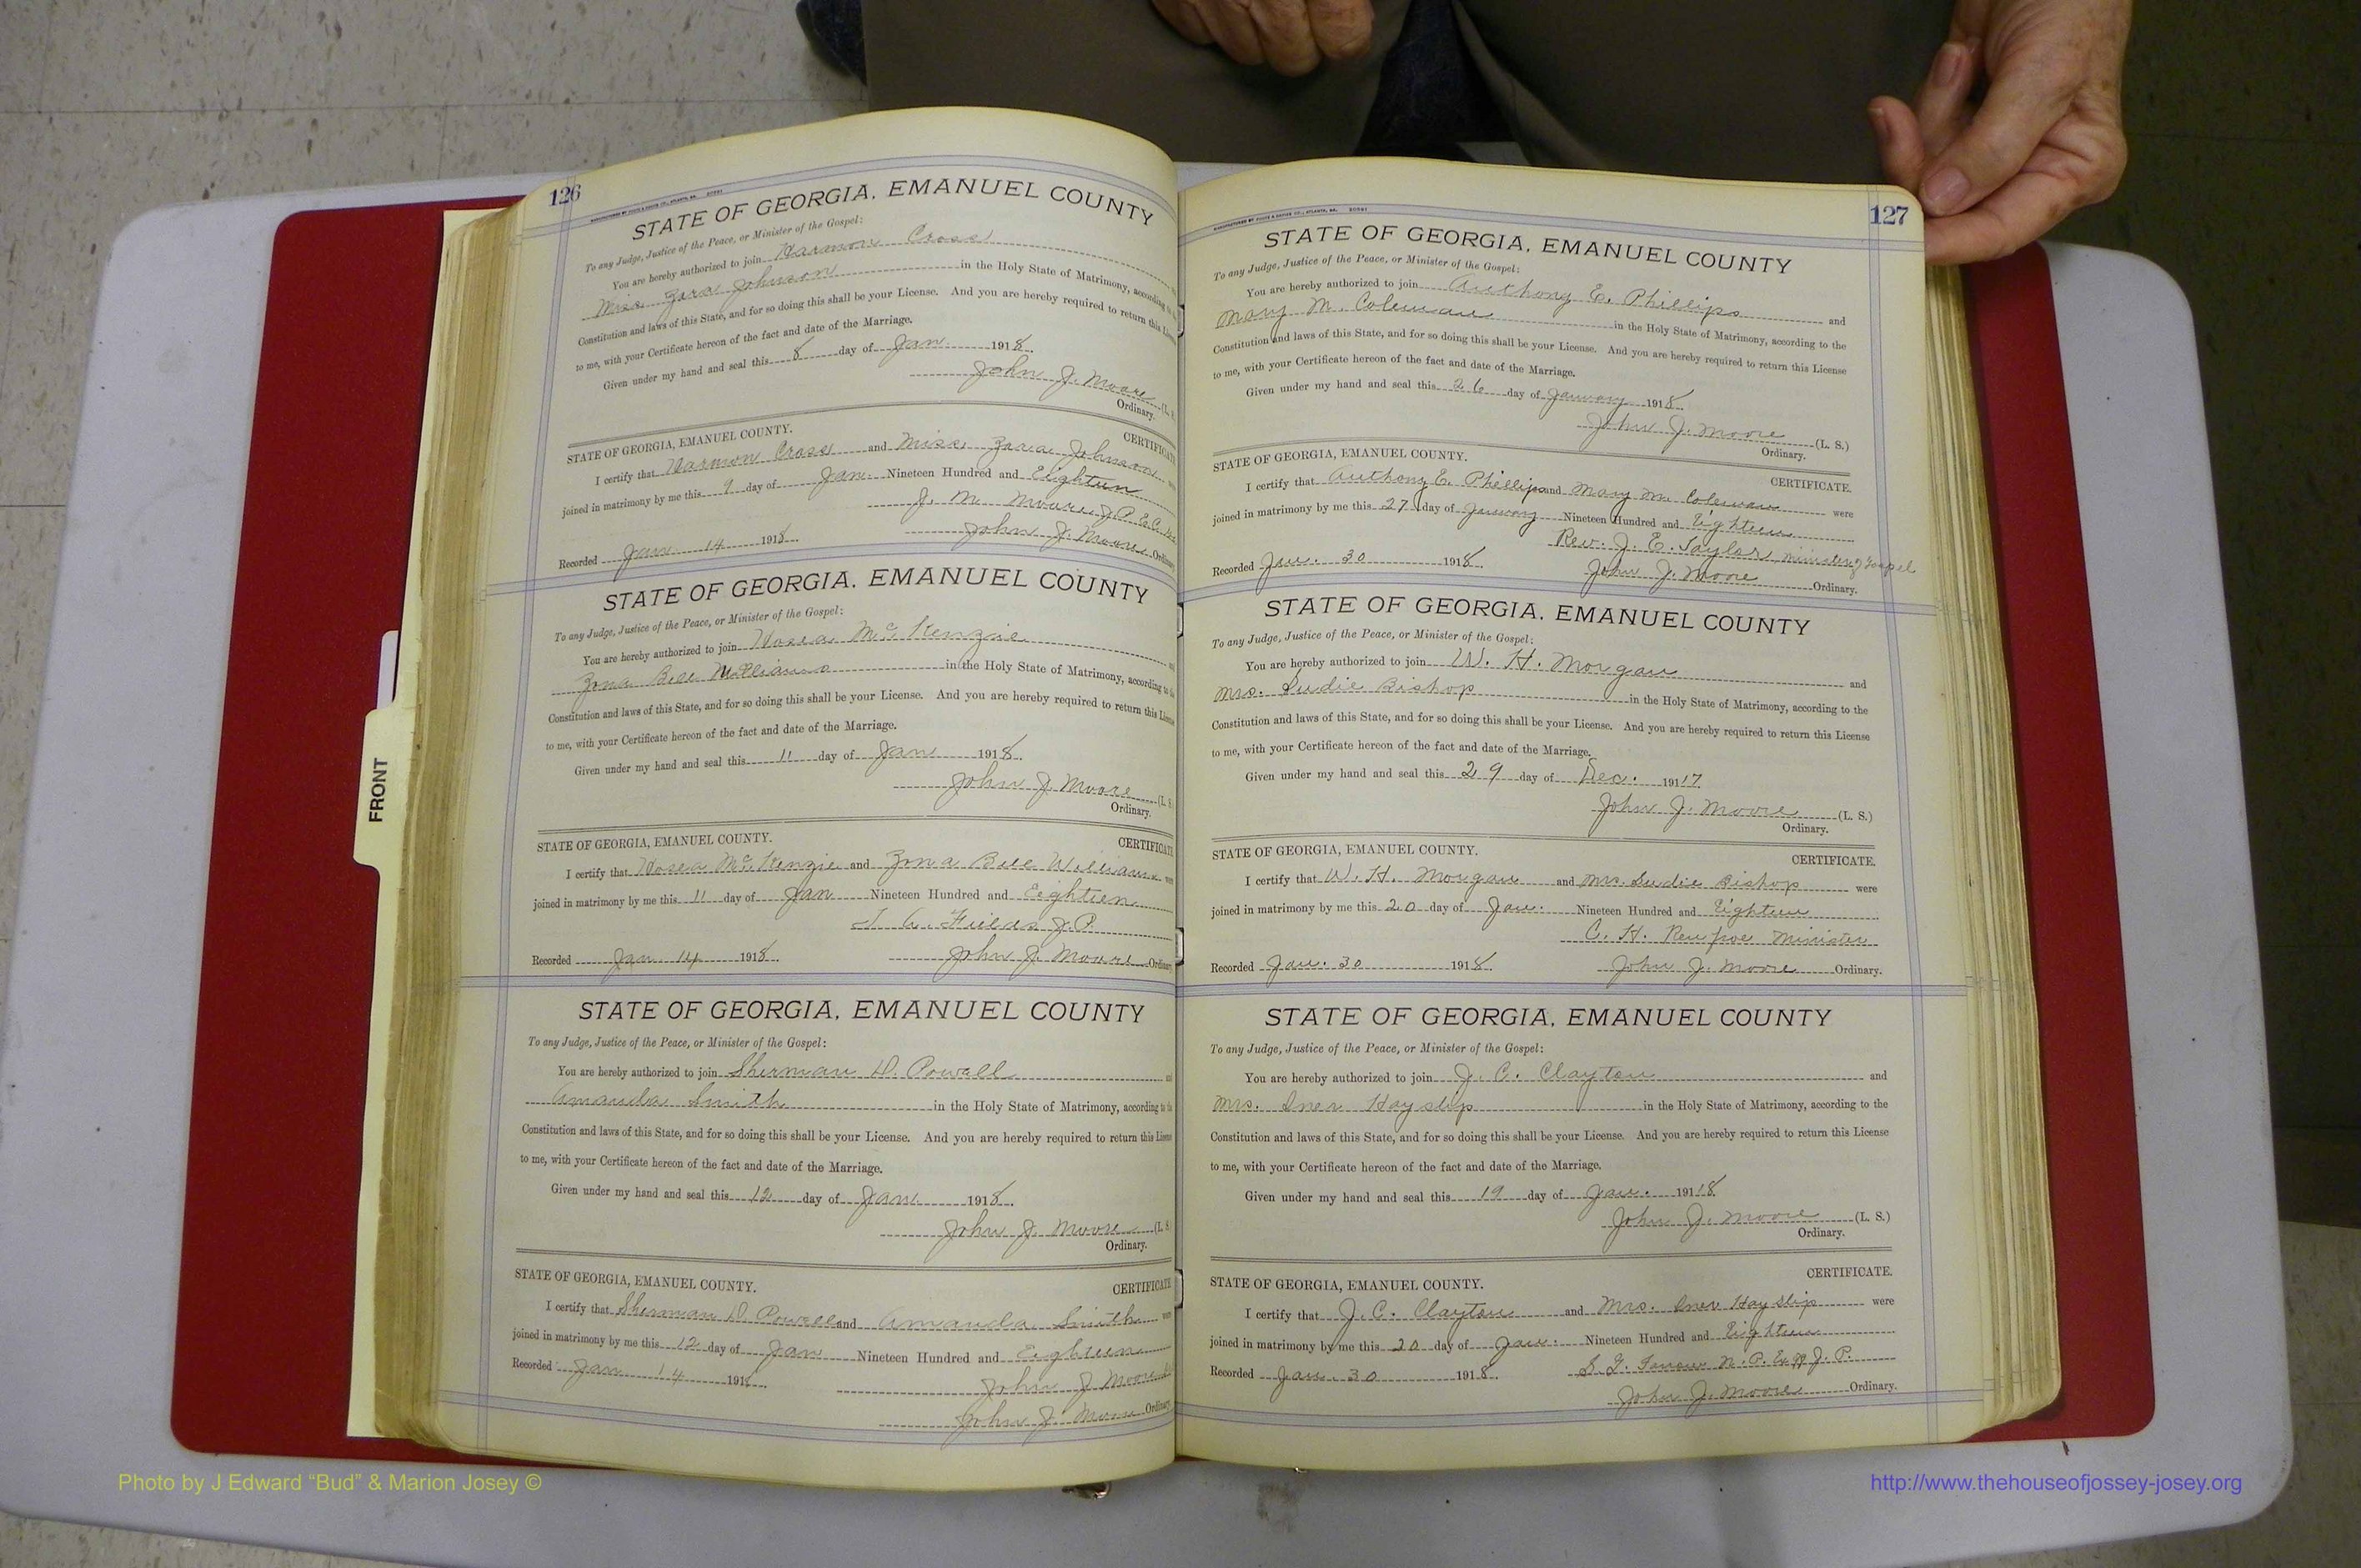 126
STATE OF GEORGIA, EMANUEL COUNTY
To any Judge, Justice of the Peace, or Minister of the Gospel:
You are hereby authorized to join Harmon Cross
Miss Zara Johnson in the Holy State of Matrimony, according to the
Constitution and laws of this State, and for so doing this shall be your License. And you are hereby required to return this
to me, with your Certificate hereon of the fact and date of the Marriage.
Given under my hand and seal this 8 day of Jan 1918.
John J. Moore (L. S.
Ordinary.
STATE OF GEORGIA, EMANUEL COUNTY. CERTIFICATE
I certify that Harmon Cross and Miss Zara Johnson
joined in matrimony by me this 9 day of Jan. Nineteen Hundred and Eighteen
J. M. Moore J.P. E.C.
Recorded Jan 14 1918. John J. Moore Ordinary
STATE OF GEORGIA, EMANUEL COUNTY
To any Judge, Justice of the Peace, or Minister of the Gospel:
You are hereby authorized to join Hosea Mc Kenzie
Zona Bell Williams in the Holy State of Matrimony, according to the
Constitution and laws of this State, and for so doing this shall be your License. And you are hereby required to return this License
to me, with your Certificate hereon of the fact and date of the Marriage.
Given under my hand and seal this 11 day of Jan 1918.
John J. Moore (L. S
Ordinary.
STATE OF GEORGIA, EMANUEL COUNTY. CERTIFICATE
I certify that Hosea Mc Kenzie and Zona Bell Williams were
joined in matrimony by me this 11 day of Jan Nineteen Hundred and Eighteen
A. Fields J.P.
Recorded Jan 14 1918. John J. Moore Ordinary
STATE OF GEORGIA, EMANUEL COUNTY
To any Judge, Justice of the Peace, or Minister of the Gospel:
You are hereby authorized to join Sherman D. Powell and
Amanda Smith in the Holy State of Matrimony, according to the
Constitution and laws of this State, and for so doing this shall be your License. And you are hereby required to return this License
to me, with your Certificate hereon of the fact and date of the Marriage.
Given under my hand and seal this 12 day of Jan 1918.
John J. Moore (L. S
Ordinary.
STATE OF GEORGIA, EMANUEL COUNTY. CERTIFICATE
I certify that Sherman D. Powell and Amanda Smith were
joined in matrimony by me this 12 day of Jan Nineteen Hundred and Eighteen
Recorded Jan 14 1918. John J Moore
John J. Moore Ordinary
127
STATE OF GEORGIA, EMANUEL COUNTY
To any Judge, Justice of the Peace, or Minister of the Gospel:
You are hereby authorized to join Anthony E. Phillips and
Mary M. Coleman in the Holy State of Matrimony, according to the
Constitution and laws of this State, and for so doing this shall be your License. And you are hereby required to return this License
to me, with your Certificate hereon of the fact and date of the Marriage.
Given under my hand and seal this 26 day of January 1918.
John J. Moore (L. S.)
Ordinary.
STATE OF GEORGIA, EMANUEL COUNTY. CERTIFICATE.
I certify that Anthony E. Phillips and Mary M. Coleman were
joined in matrimony by me this 27 day of January Nineteen Hundred and Eighteen
Rev. J. E. Taylor, minister of Gospel
Recorded Jan. 30 1918. John J. Moore Ordinary.
STATE OF GEORGIA, EMANUEL COUNTY
To any Judge, Justice of the Peace, or Minister of the Gospel:
You are hereby authorized to join W. H. Morgan and
Mrs. Sudie Bishop in the Holy State of Matrimony, according to the
Constitution and laws of this State, and for so doing this shall be your License. And you are hereby required to return this License
to me, with your Certificate hereon of the fact and date of the Marriage.
Given under my hand and seal this 29 day of Dec. 19117.
John J. Moore (L. S.)
Ordinary.
STATE OF GEORGIA, EMANUEL COUNTY. CERTIFICATE.
I certify that W. H. Morgan and Mrs. Sudie Bishop were
joined in matrimony by me this 20 day of Jan. Nineteen Hundred and Eighteen
C. H. Renfroe Minister
Recorded Jan. 30 1918. John J. Moore Ordinary.
STATE OF GEORGIA, EMANUEL COUNTY
To any Judge, Justice of the Peace, or Minister of the Gospel:
You are hereby authorized to join J. C. Clayton and
Mrs. Iner Hayslip in the Holy State of Matrimony, according to the
Constitution and laws of this State, and for so doing this shall be your License. And you are hereby required to return this License
to me, with your Certificate hereon of the fact and date of the Marriage.
Given under my hand and seal this 19 day of Jan. 19118
John J. Moore (L. S.)
Ordinary.
STATE OF GEORGIA, EMANUEL COUNTY. CERTIFICATE.
I certify that J. C. Clayton and Mrs. Iner Hayslip were
joined in matrimony by me this 20 day of Jan. Nineteen Hundred and Eighteen
Recorded Jan. 30 1918. N. P. Ex off J. P.
John J. Moore Ordinary.
FRONT
Photo by J Edward “Bud” & Marion Josey ©
http://www.thehouseofjossey-josey.org